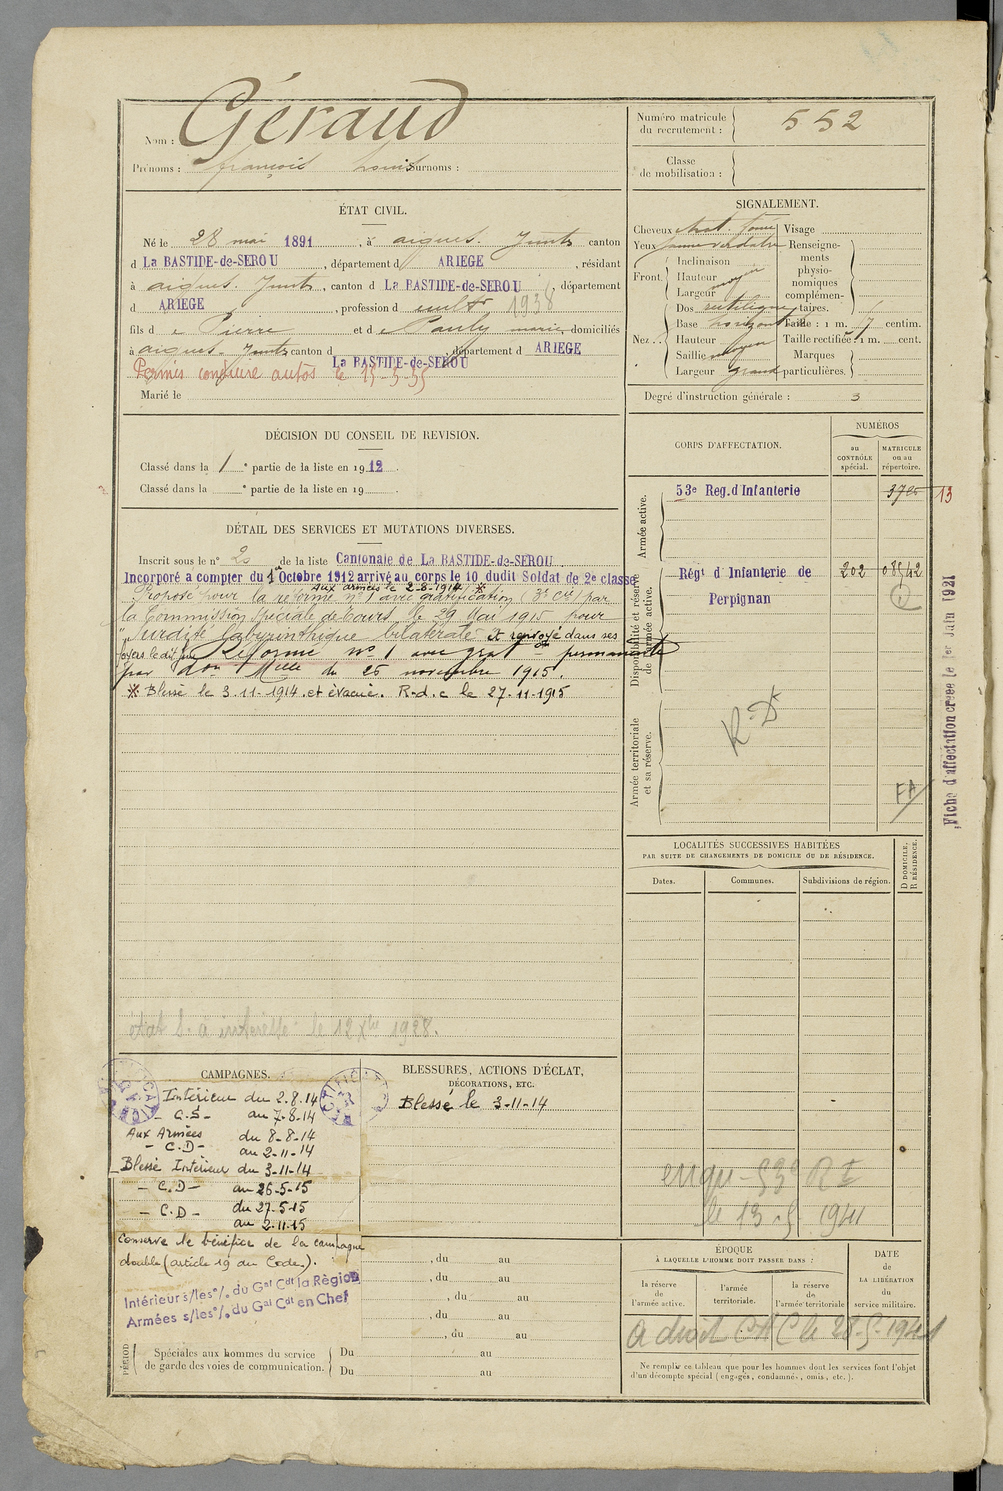 Nom : Géraud
Prénoms : françois Louis Surnoms :
Numéro matricule
du recrutement : 552
Classe
de mobilisation :
ÉTAT CIVIL.
Né le 28 mai 1891, à aigues. Juntes canton
d La BASTIDE-de-SEROU, département d ARIEGE, résidant
à aigues. Juntes, canton d La BASTIDE-de-SEROU, département
d ARIEGE, profession d cultr 1938
fils d e Pierre et d e Pauly marie, domiciliés
à aigues-Juntes canton d La BASTIDE-de-SEROU, département d ARIEGE
Permis conduire autos le 15-5-35
Marié le
SIGNALEMENT.
Cheveux chat foncé Visage
Yeux jaune verdatre Renseigne-
ments
physio-
nomiques
complémen-
taires.
Front.
Inclinaison
Hauteur moyen
Largeur
Nez..
Dos rectiligne
Base horizontale Taille : 1 m. 7 centim.
Hauteur Taille rectifiée : 1 m. cent.
Saillie moyen Marques
Largeur grand particulières.
Degré d'instruction générale : 3
DÉCISION DU CONSEIL DE REVISION.
Classé dans la 1 e partie de la liste en 1912.
Classé dans la e partie de la liste en 19 .
DÉTAIL DES SERVICES ET MUTATIONS DIVERSES.
Inscrit sous le n° 20 de la liste Cantonale de La BASTIDE-de-SEROU
Incorporé à compter du 1er Octobre 1912 arrivé au corps le 10 dudit Soldat de 2e classe
Aux armées le 2-8-1914 ※
Proposé pour la réforme n° 1 avec gratification (3e Cie) par
la Commission Spéciale de Tours le 29 Mai 1915 pour
"surdité labyrinthique bilatérale" et renvoyé dans ses
foyers le dit jour Réformé n° 1 avec grat on permanente
par don Mlle du 25 novembre 1915.
※ Blessé le 3-11-1914 et évacué. R.d.c le 27-11-1915
état S. à intéressé le 12 Xbre 1928.
CORPS D'AFFECTATION.
NUMÉROS
au
CONTRÔLE
spécial.
MATRICULE
ou au
répertoire.
Armée active.
53e Reg. d'Infanterie
13
Disponibilité et réserve
de l'armée active.
Régt d'Infanterie de 202 08542
Perpignan
C
Armée territoriale
et sa réserve.
R.D*
FA
Fiche d'affectation créée le 1er Juin 1921
LOCALITÉS SUCCESSIVES HABITÉES
PAR SUITE DE CHANGEMENTS DE DOMICILE OU DE RÉSIDENCE.
D DOMICILE.
R RÉSIDENCE.
Dates. Communes. Subdivisions de région.
le 13.5. 1941
CAMPAGNES.
Intérieur du 2.8.14
- C.S- au 7-8-14
Aux Armées du 8-8-14
- C.D- au 2-11-14
Blessé Intérieur du 3-11-14
- C.D- au 26-5-15
- C.D- du 27-5-15
au 2.11.15
Conserve le bénéfice de la campagne
double (article 19 du Code.).
Intérieur s/les °/. du Gal Cdt la Région
Armées s/les °/. du Gal Cdt en Chef
RECTIFICATION
BLESSURES, ACTIONS D'ÉCLAT,
DÉCORATIONS, ETC.
Blessé le 3-11-14
, du au
, du au
, du au
, du au
, du au
PÉRIOD
Spéciales aux hommes du service
de garde des voies de communication.
Du au
Du au
ÉPOQUE
À LAQUELLE L'HOMME DOIT PASSER DANS :
la réserve
de
l'armée active.
l'armée
territoriale.
la réserve
de
l'armée territoriale
DATE
de
LA LIBÉRATION
du
service militaire.
a droit le 28-5-1941
Ne remplir ce tableau que pour les hommes dont les services font l'objet
d'un décompte spécial (engagés, condamnés, omis, etc.).